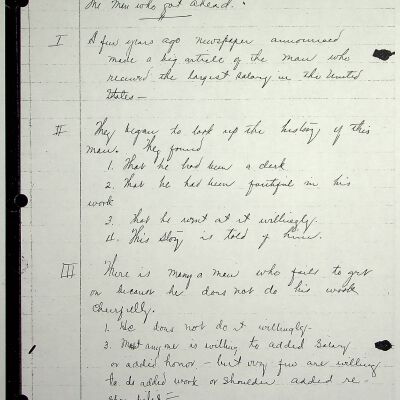 The Men who got ahead.
I A few years ago newspaper announced
made a big article of the man who
received the largest salary in the United
States —
II They began to look up the history of this
man. They found
1. That he had been a clerk
2. That he had been faithful in his
work
3. That he went at it willingly.
4. This story is told of him.
III There is many a man who fails to get
on because he does not do his work
cheerfully.
1. He does not do it willingly
3. Most anyone is willing to added salary
or added honor — but very few are willing
to do added work or shoulder added re-